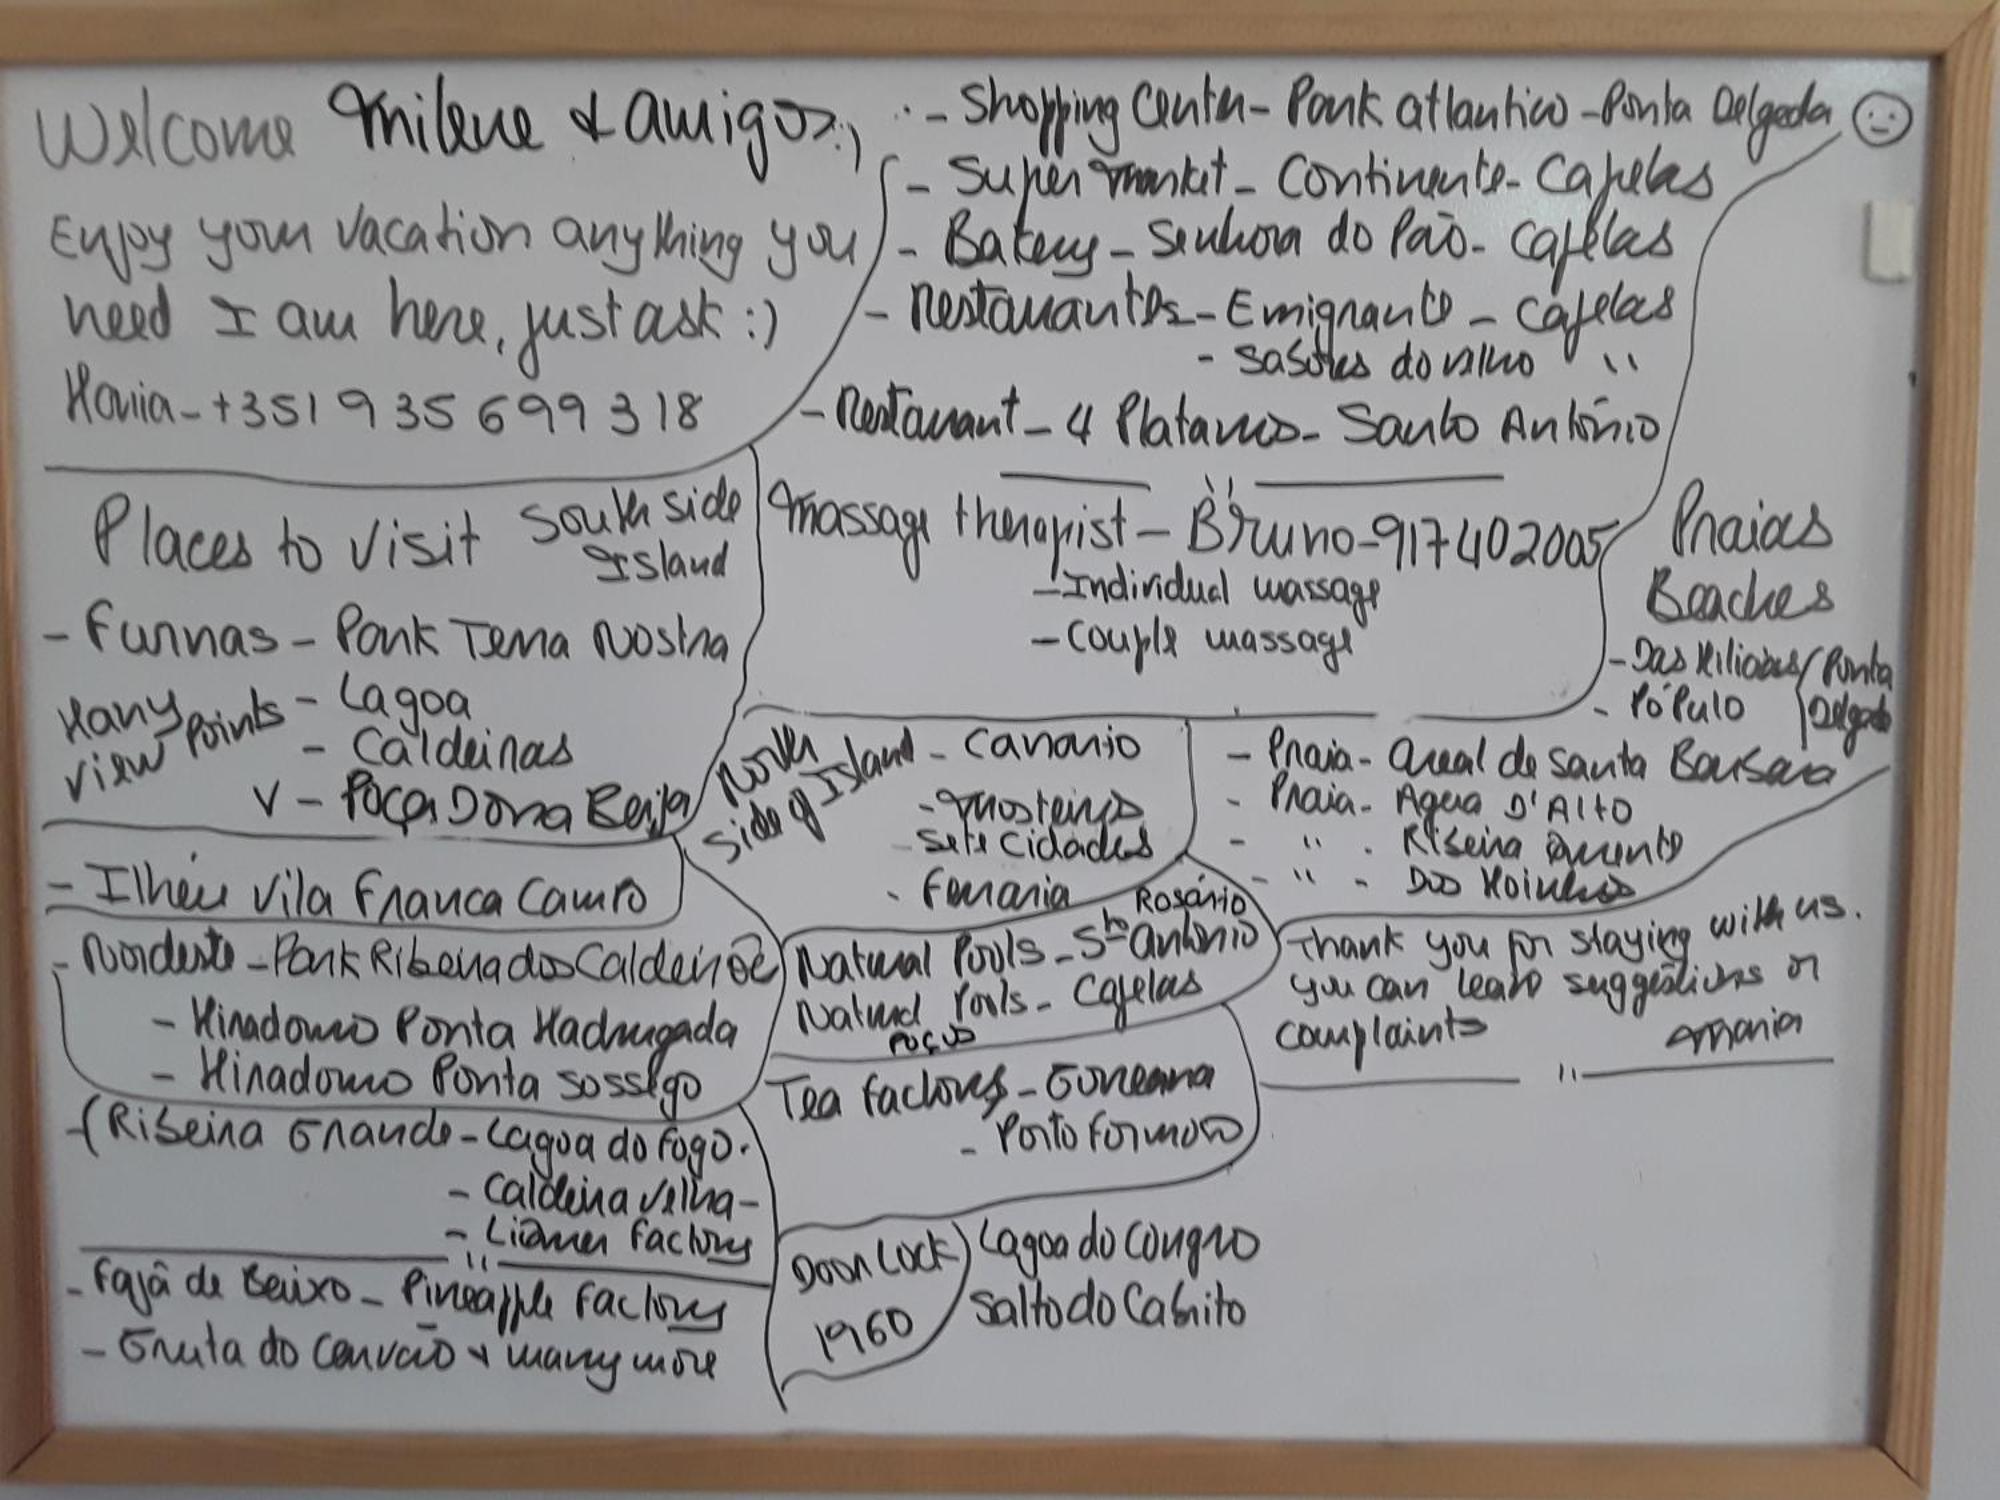 Welcome Milene & amigos :)
Enjoy your vacation anything you
need I am here, just ask :)
Maria - +351 935 699 318
- Shopping Center - Park atlantico - Ponta Delgada
- Super market - Continente - Capelas
- Bakery - Senhora do Pão - Capelas
- Restaurantes - Emigrante - Capelas
- Sabores do velho "
- Restaurant - 4 Platanos - Santo António
Massage therapist - Bruno - 917402005
- Individual massage
- Couple massage
Places to visit South side
Island
- Furnas - Park Terra Nostra
Many view points
- Lagoa
- Caldeiras
V - Poça Dona Beija
- Ilhéu Vila Franca Campo
- Nordeste - Park Ribeira dos Caldeirões
- Miradouro Ponta Madrugada
- Miradouro Ponta Sossego
- (Ribeira Grande - Lagoa do Fogo.
- Caldeira Velha -
- Liquer factory
"
- Fajã de Baixo - Pineapple factory
- Gruta do Carvão & many more
North side of Island
- Canario
- Mosteiros
Sete Cidades
- Ferraria
Natural Pools - Sto António Rosário
Natural Pools - Capelas
Poços
Tea factory - Gorreana
- Porto Formoso
Door Lock
1960
Lagoa do Congro
Salto do Cabrito
Praias
Beaches
- Das Milicias / Ponta
- Pópulo Delgada
- Praia - Areal de Santa Barbara
- Praia - Agua D'Alto
- " - Ribeira Quente
- " - Dos Moinhos
Thank you for staying with us.
you can leave suggestions or
complaints Maria
"